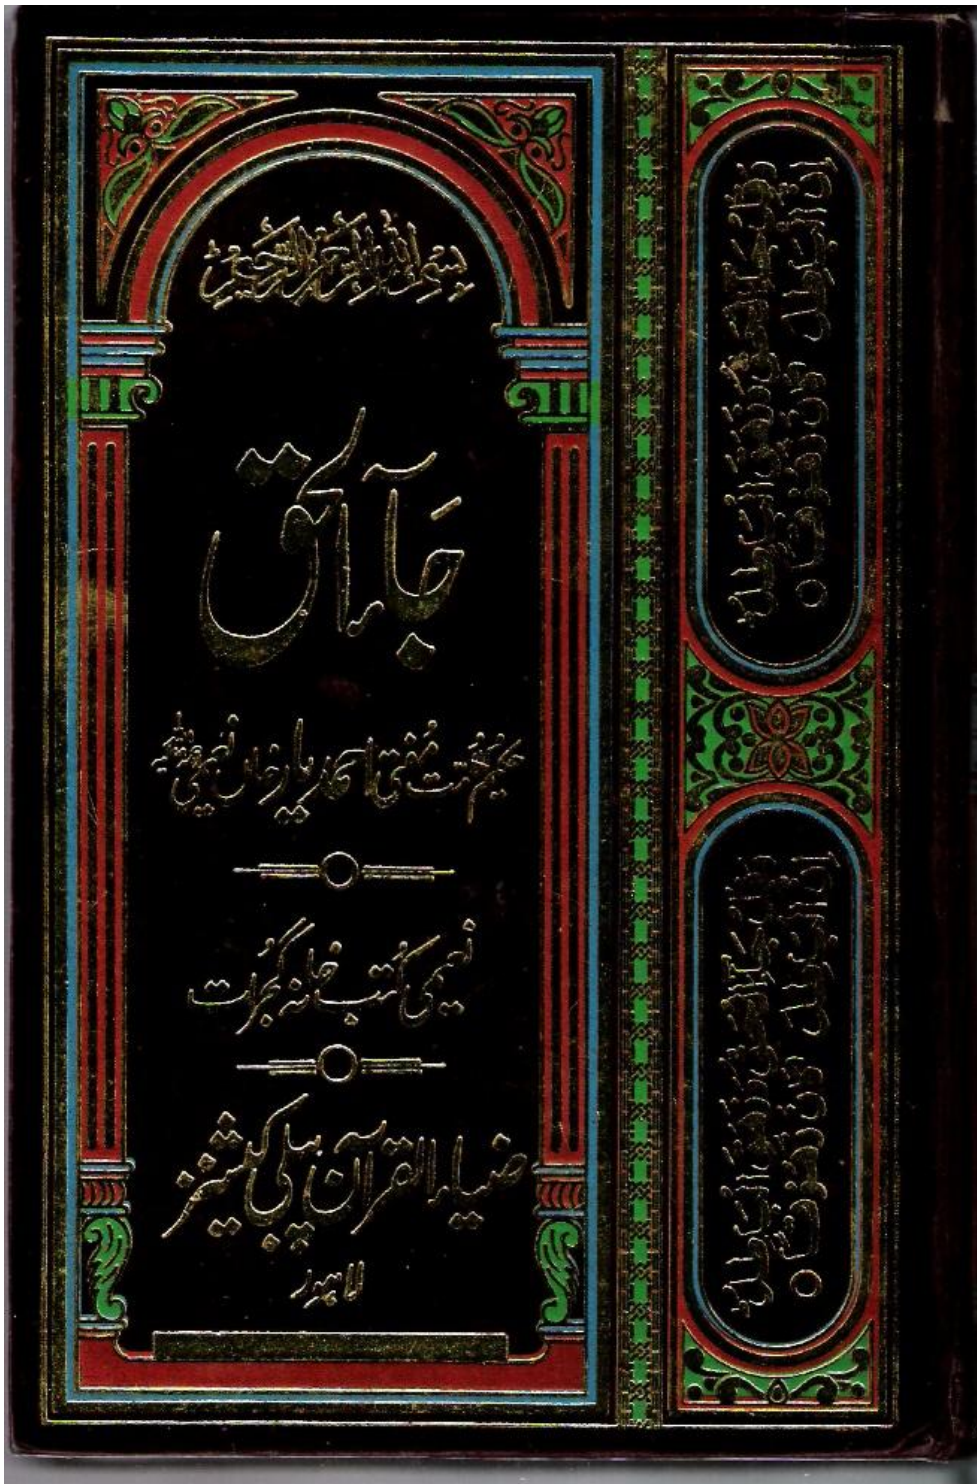 بِسْمِ اللّٰهِ الرَّحْمٰنِ الرَّحِيْمِ
جَآءَ الحق
حکیم الامت مفتی احمد یار خاں نعیمی
نعیمی کتب خانہ گجرات
ضیاء القرآن پبلی کیشنز
لاہور
وَقُلْ جَآءَ الْحَقُّ وَزَهَقَ الْبَاطِلُ
اِنَّ الْبَاطِلَ كَانَ زَهُوْقًا ○
وَقُلْ جَآءَ الْحَقُّ وَزَهَقَ الْبَاطِلُ
اِنَّ الْبَاطِلَ كَانَ زَهُوْقًا ○